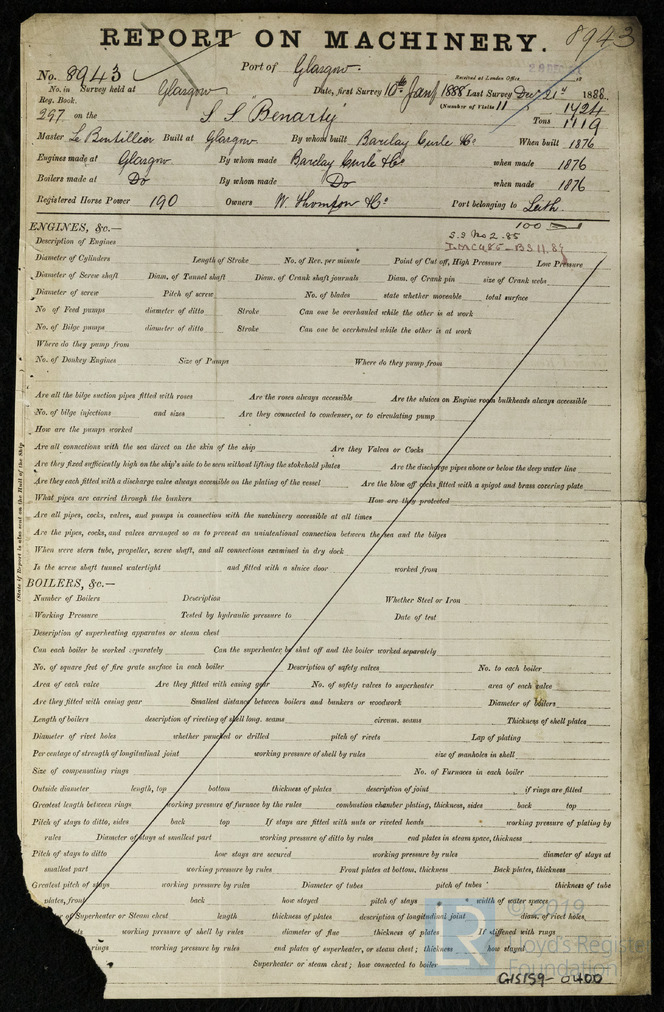 8943
REPORT ON MACHINERY.
Port of Glasgow.
Received at London Office 18
No. 8943
No. in Survey held at Glasgow Date, first Survey 10th Jany 1888 Last Survey Decr 21st 1888
Reg. Book. (Number of Visits 11
1424
297 on the S S "Benarty" Tons 1119
Master Le Boutillier Built at Glasgow By whom built Barclay Curle & Co When built 1876
Engines made at Glasgow By whom made Barclay Curle & Co when made 1876
Boilers made at Do By whom made Do when made 1876
Registered Horse Power 190 Owners W. Thomson & Co Port belonging to Leith.
100
ENGINES, &c.—
S.S No 2. 85
Description of Engines
Diameter of Cylinders Length of Stroke No. of Rev. per minute Point of Cut off, High Pressure Low Pressure
Diameter of Screw shaft Diam. of Tunnel shaft Diam. of Crank shaft journals Diam. of Crank pin size of Crank webs
Diameter of screw Pitch of screw No. of blades state whether moveable total surface
No of Feed pumps diameter of ditto Stroke Can one be overhauled while the other is at work
No. of Bilge pumps diameter of ditto Stroke Can one be overhauled while the other is at work
Where do they pump from
No. of Donkey Engines Size of Pumps Where do they pump from
Are all the bilge suction pipes fitted with roses Are the roses always accessible Are the sluices on Engine room bulkheads always accessible
No. of bilge injections and sizes Are they connected to condenser, or to circulating pump
How are the pumps worked
Are all connections with the sea direct on the skin of the ship Are they Valves or Cocks
Are they fixed sufficiently high on the ship's side to be seen without lifting the stokehold plates Are the discharge pipes above or below the deep water line
Are they each fitted with a discharge valve always accessible on the plating of the vessel Are the blow off cocks fitted with a spigot and brass covering plate
What pipes are carried through the bunkers How are they protected
Are all pipes, cocks, valves, and pumps in connection with the machinery accessible at all times
Are the pipes, cocks, and valves arranged so as to prevent an unintentional connection between the sea and the bilges
When were stern tube, propeller, screw shaft, and all connections examined in dry dock
Is the screw shaft tunnel watertight and fitted with a sluice door worked from
(State if Report is also sent on the Hull of the Ship
BOILERS, &c.—
Number of Boilers Description Whether Steel or Iron
Working Pressure Tested by hydraulic pressure to Date of test
Description of superheating apparatus or steam chest
Can each boiler be worked separately Can the superheater be shut off and the boiler worked separately
No. of square feet of fire grate surface in each boiler Description of safety valves No. to each boiler
Area of each valve Are they fitted with easing gear No. of safety valves to superheater area of each valve
Are they fitted with easing gear Smallest distance between boilers and bunkers or woodwork Diameter of boilers
Length of boilers description of riveting of shell long. seams circum. seams Thickness of shell plates
Diameter of rivet holes whether punched or drilled pitch of rivets Lap of plating
Per centage of strength of longitudinal joint working pressure of shell by rules size of manholes in shell
Size of compensating rings No. of Furnaces in each boiler
Outside diameter length, top bottom thickness of plates description of joint if rings are fitted
Greatest length between rings working pressure of furnace by the rules combustion chamber plating, thickness, sides back top
Pitch of stays to ditto, sides back top If stays are fitted with nuts or riveted heads working pressure of plating by
rules Diameter of stays at smallest part working pressure of ditto by rules end plates in steam space, thickness
Pitch of stays to ditto how stays are secured working pressure by rules diameter of stays at
smallest part working pressure by rules Front plates at bottom, thickness Back plates, thickness
Greatest pitch of stays working pressure by rules Diameter of tubes pitch of tubes thickness of tube
plates, front back how stayed pitch of stays width of water spaces
of Superheater or Steam chest length thickness of plates description of longitudinal joint diam. of rivet holes
working pressure of shell by rules diameter of flue thickness of plates If stiffened with rings
rings working pressure by rules end plates of superheater, or steam chest; thickness how stayed
Superheater or steam chest; how connected to boiler
LR
© 2019
Lloyd's Register
Foundation
GIS159-0400